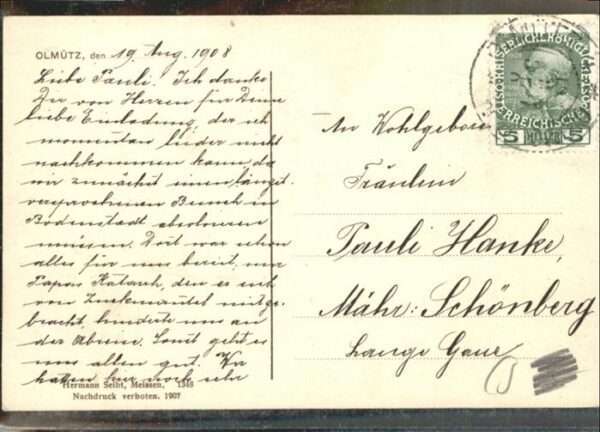 OLMÜTZ, den 19. Aug. 1908
Liebe Pauli! Ich danke
Dir von Herzen für Deine
liebe Einladung, der ich
momentan leider nicht
nachkommen kann, da
wir zunächst einen längst
versprochenen Besuch in
Bodenstadt absolvieren
müssen. Dort war schon
alles für uns bereit, nur
Papas Katarrh, den er sich
von Zuckmantel mitge-
bracht, hinderte uns an
der Abreise. Sonst geht es
uns allen gut. Wir
haben hier noch sehr
Hermann Seibt, Meissen, 1348
Nachdruck verboten. 1907
An Wohlgeboren
Fräulein
Pauli Hanke,
Mähr: Schönberg
Lange Gasse
KAISERLICHE KÖNIGLICHE
ÖSTERREICHISCHE POST
5 HELLER 5